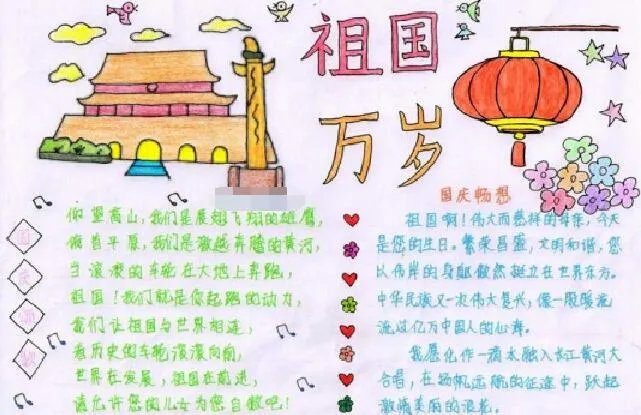 祖国
万岁
国庆畅想
仰望高山,我们是展翅飞翔的雄鹰,
俯首平原,我们是激越奔腾的黄河,
当滚滚的车轮在大地上奔跑,
祖国!我们就是你起跑的动力,
我们让祖国与世界相连,
看历史的车轮滚滚向前,
世界在发展,祖国在前进,
请允许您的儿女为您自傲吧!
祖国啊!伟大而慈祥的母亲,今天
是您的生日。繁荣昌盛,文明和谐,您
以伟岸的身躯傲然挺立在世界东方。
中华民族又一次伟大复兴,像一股暖流
流过亿万中国人的心海。
我愿化作一滴水融入长江黄河大
合唱,在扬帆远航的征途中,跃起
激情美丽的浪花。
国
庆
颂
歌